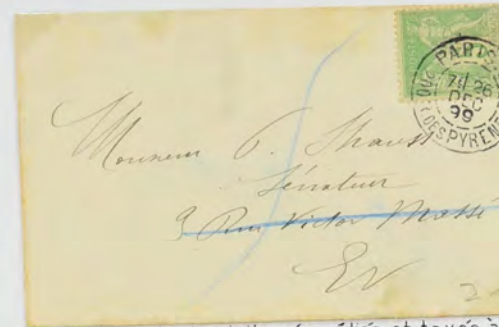 PARIS
7E 26
DEC
99
DES PYRENE
Monsieur P. Strauss
Sénateur
9 Rue Victor Massé
EV
et taxée à